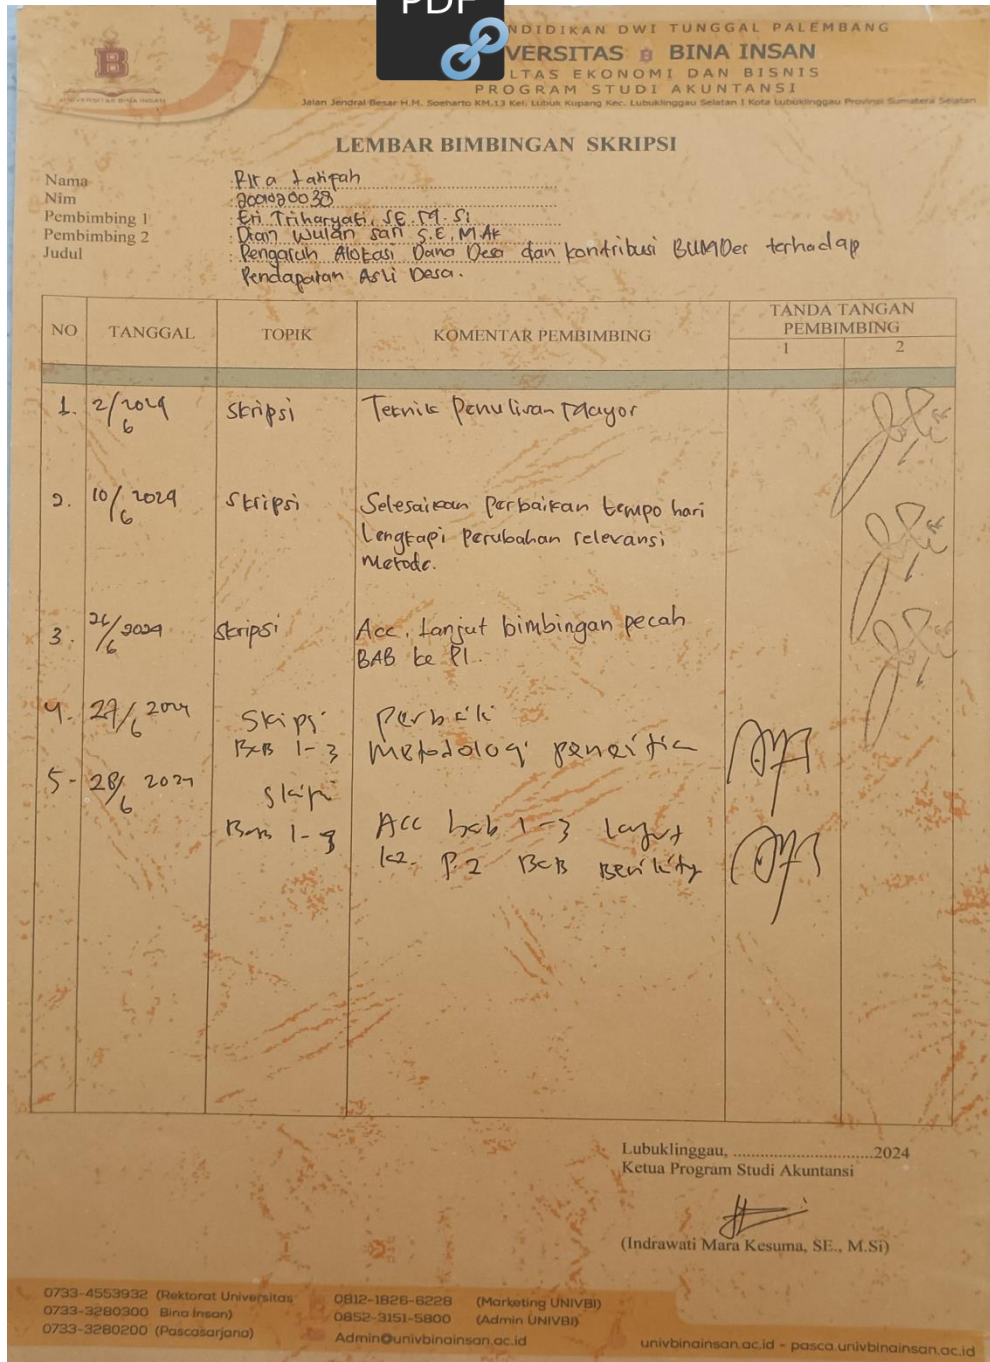 PDF
NDIDIKAN DWI TUNGGAL PALEMBANG
VERSITAS B BINA INSAN
LTAS EKONOMI DAN BISNIS
PROGRAM STUDI AKUNTANSI
Jalan Jendral Besar H.M. Soeharto KM.13 Kel. Lubuk Kupang Kec. Lubuklinggau Selatan I Kota Lubuklinggau Provinsi Sumatera Selatan
UNIVERSITAS BINA INSAN
LEMBAR BIMBINGAN SKRIPSI
Nama : Rita Latifah
Nim
Pembimbing 1 : Eri Triharyati, SE. M. Si
Pembimbing 2 : Dian Wulan Sari S.E, M.Ak
Judul : Pengaruh Alokasi Dana Desa dan kontribusi BUMDes terhadap
Pendapatan Asli Desa.
NO TANGGAL TOPIK KOMENTAR PEMBIMBING TANDA TANGAN PEMBIMBING
1 2
1. 2/6 2024 Skripsi Teknik Penulisan Mayor
2. 10/6 2024 Skripsi Selesaikan Perbaikan tempo hari
Lengkapi perubahan relevansi
metode.
3. 26/6 2024 Skripsi Acc, Lanjut bimbingan pecah
BAB ke P1.
4. 27/6 2024 Skipsi Perbaiki
Bab 1-3 Metodologi penelitia
5- 28/6 2024 Skipi
Bab 1-3 Acc bab 1-3 Lanjut
ke P.2 Bab Berikuty
Lubuklinggau, ................................2024
Ketua Program Studi Akuntansi
(Indrawati Mara Kesuma, SE., M.Si)
0733-4553932 (Rektorat Universitas
0733-3280300 Bina Insan)
0733-3280200 (Pascasarjana)
0812-1826-6228 (Marketing UNIVBI)
0852-3151-5800 (Admin UNIVBI)
Admin@univbinainsan.ac.id
univbinainsan.ac.id - pasca.univbinainsan.ac.id